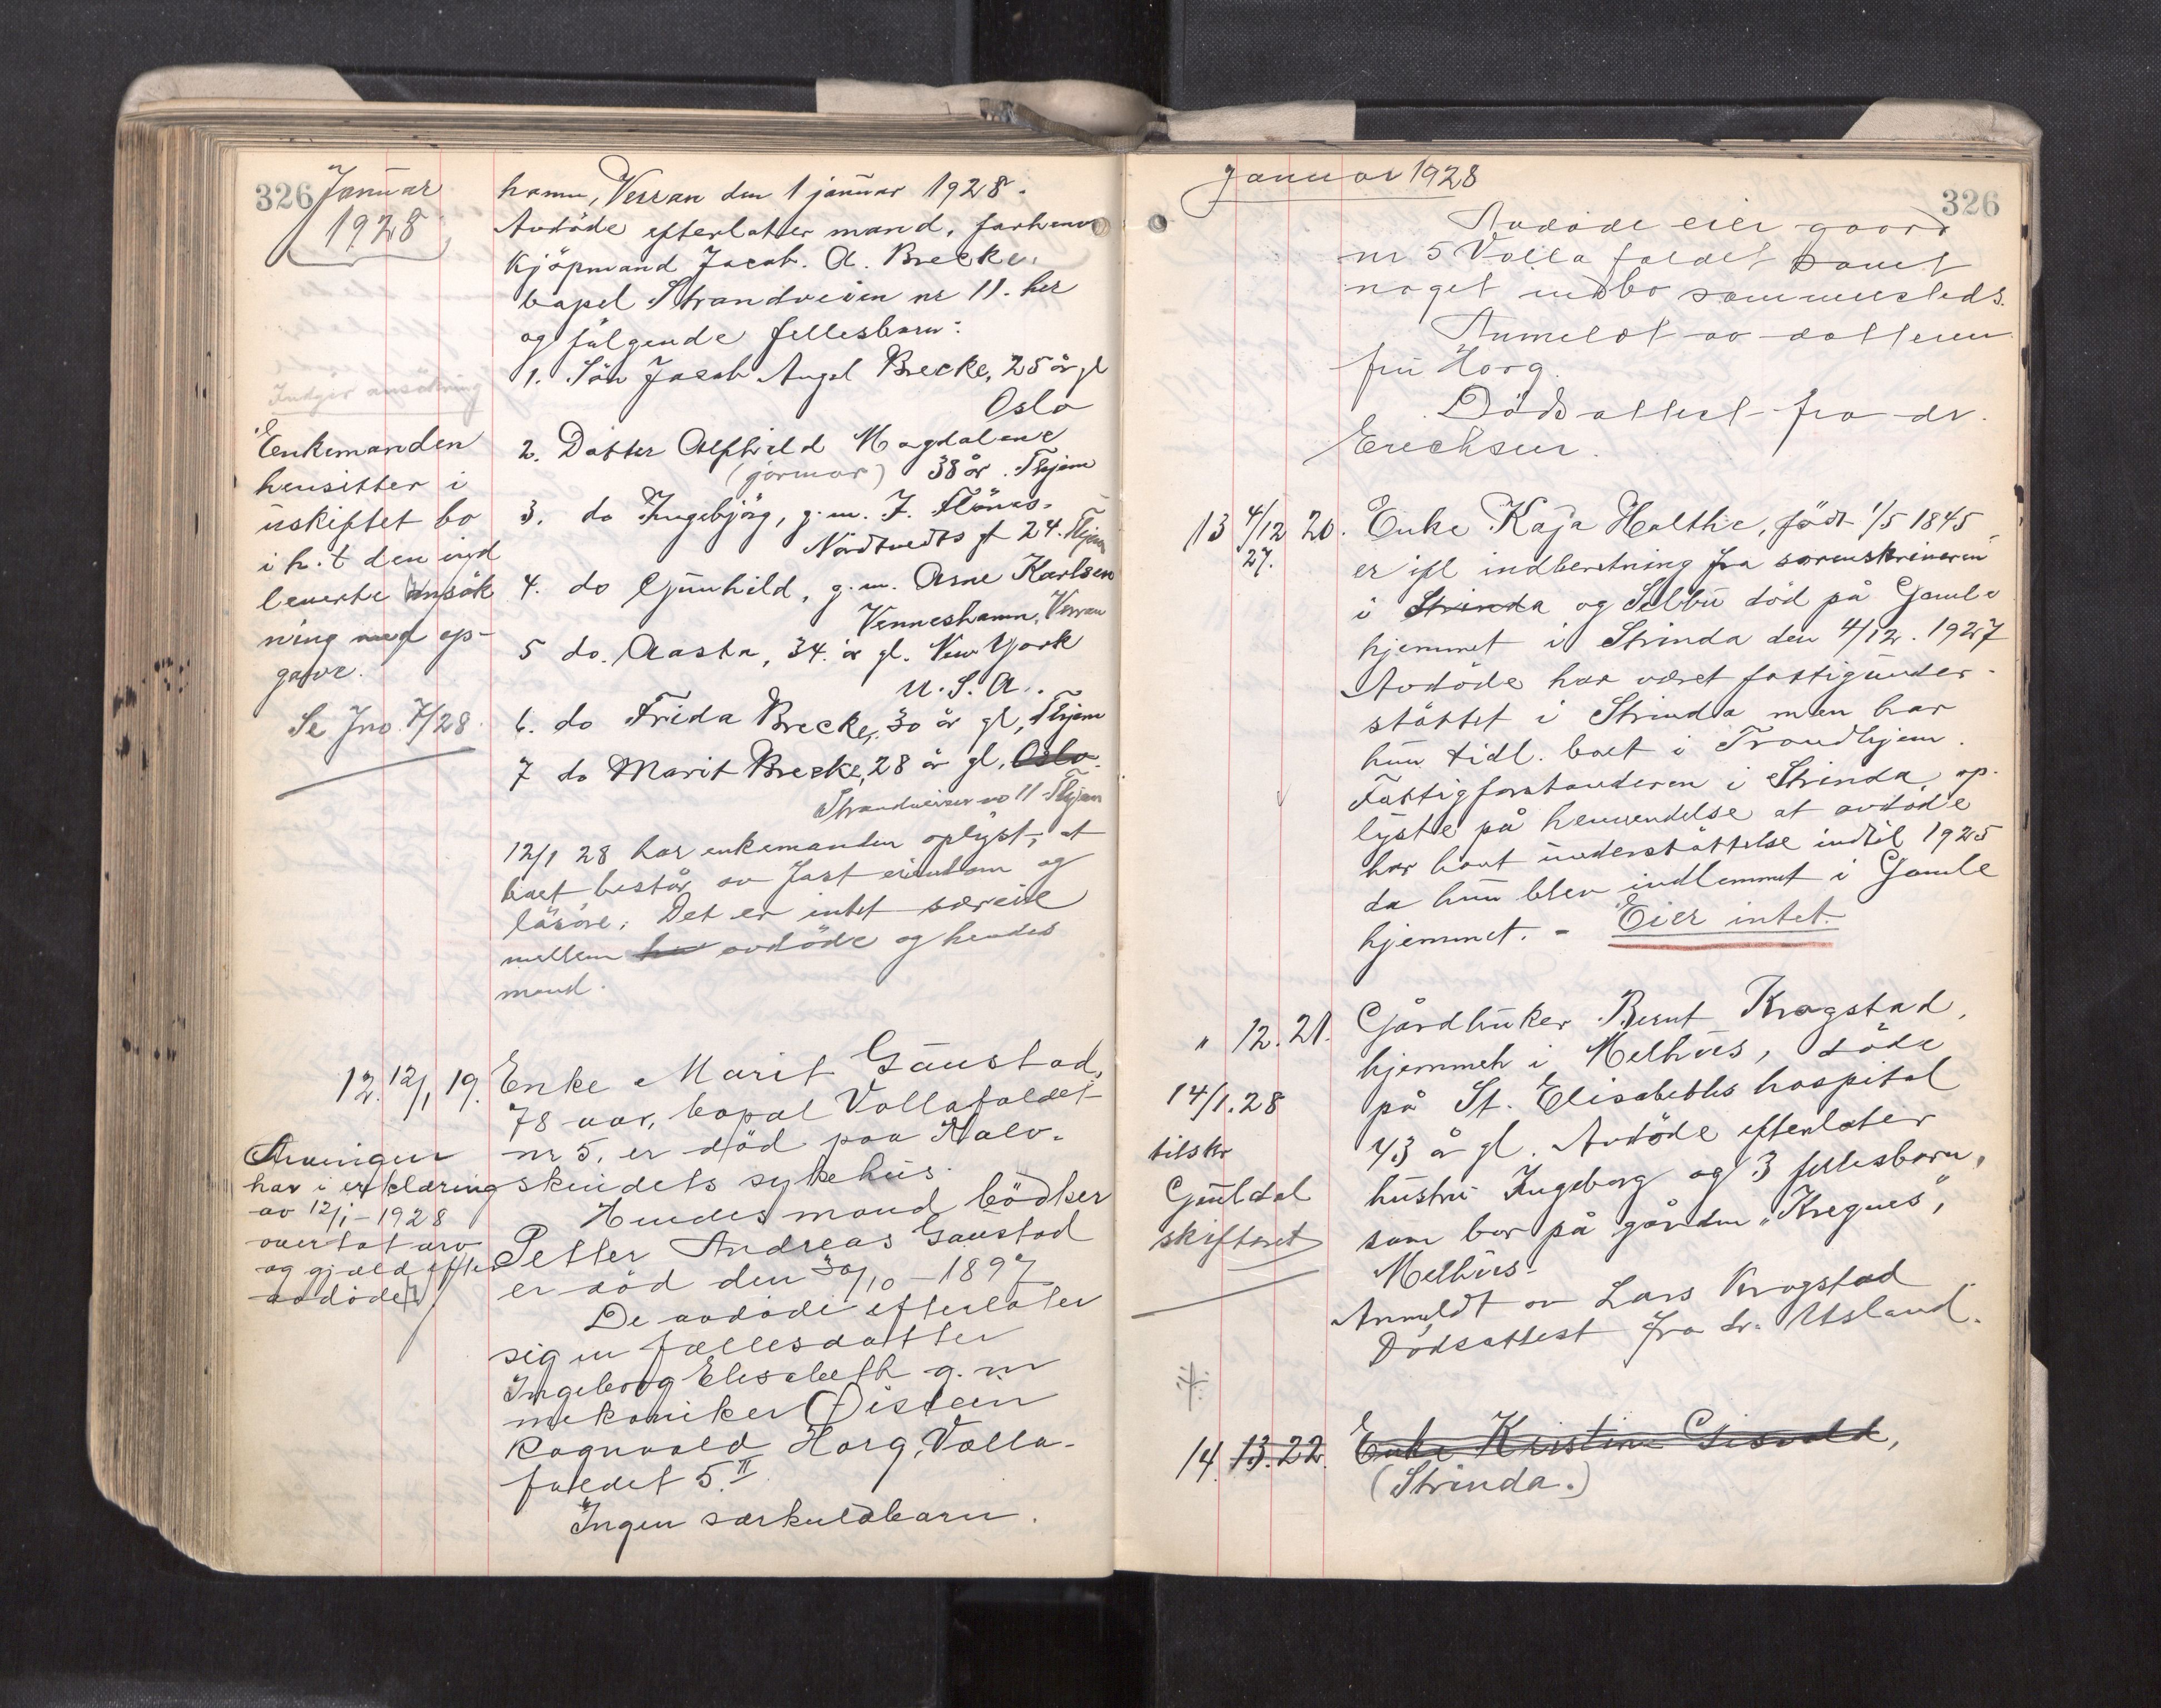 326 Januar
1928
hamn, Verran den 1 januar 1928.
Avdöde efterlater mand, forhenv
kjöpmand Jacob. A. Brecke,
bopel Strandveien nr 11. her
og fölgende fellesbarn:
1. Sön Jacob Angel Brecke, 25 år gl
Oslo
2. Datter Alfhild Magdalene
(jormor) 38 år. Thjem
3. do Ingebjörg, g.m. J. Flönes.
Nordtvedts gt 24. Thjem
4. do Gunhild, g.m. Arne Karlsen
Venneshamn, Verran
5 do. Aasta, 34. år gl. New York
U.S.A.
6. do Frida Brecke, 30 år gl, Thjem
7 do Marit Brecke, 28 år gl, Oslo.
Strandveien no 11 Thjem
12/1 28 har enkemanden oplyst, at
boet består av fast eiendom og
lösöre. Det er intet særeie
mellem avdöde og hendes
mand.
Indgir ansökning
Enkemanden
hensitter i
uskiftet bo
i h.t den ind
leverte ansök
ning med op-
gave.
Se Jno 7/28.
12. 12/1 19. Enke Marit Gaustad,
78 aar, bopæl Vollafaldet
nr 5. er död paa Kalv-
skindets sykehus.
Hendes mand bödker
Petter Andreas Gaustad
er död den 30/10 - 1897
De avdöde efterlater
sig en fællesdatter
Ingeborg Elisabeth g.m
mekaniker Øistein
Ragnvald Horg, Volla-
faldet 5.II
Ingen særkuldbarn.
Arvingen
har i erklæring
av 12/1 - 1928
overtat arv
og gjæld efter
avdöde
Januar 1928
326
Avdöde eier gaard
nr 5 Vollafaldet samt
noget indbo sammesteds.
Anmeldt av datteren
fru Horg.
Dödsattest fra dr.
Erichsen.
13 4/12 27. 20. Enke Kaja Holthe, födt 1/5 1845
er ifl indberetning fra sorenskriveren
i Strinda og Selbu död på Gamle
hjemmet i Strinda den 4/12. 1927
Avdöde har været fattigunder-
støttet i Strinda men har
hun tidl. boet i Trondhjem.
Fattigforstanderen i Strinda op-
lyste på henvendelse at avdöde
har havt understöttelse indtil 1925
da hun blev indlemmet i Gamle
hjemmet. - Eier intet.
" 12. 21. Gårdbruker Bernt Krogstad,
hjemmeh i Melhus, döde
på St. Elisabeths hospital
43 å gl. Avdöde efterlater
hustru Ingeborg og 3 fellesbarn,
som bor på gården "Kregnes",
Melhus.
Anmeldt av Lars Krogstad
Dödsattest fra dr. Utsland.
14/1.28
tilskr
Guldal
skifteret
14. 13. 22. Enke Kristine Gisvold,
(Strinda.)